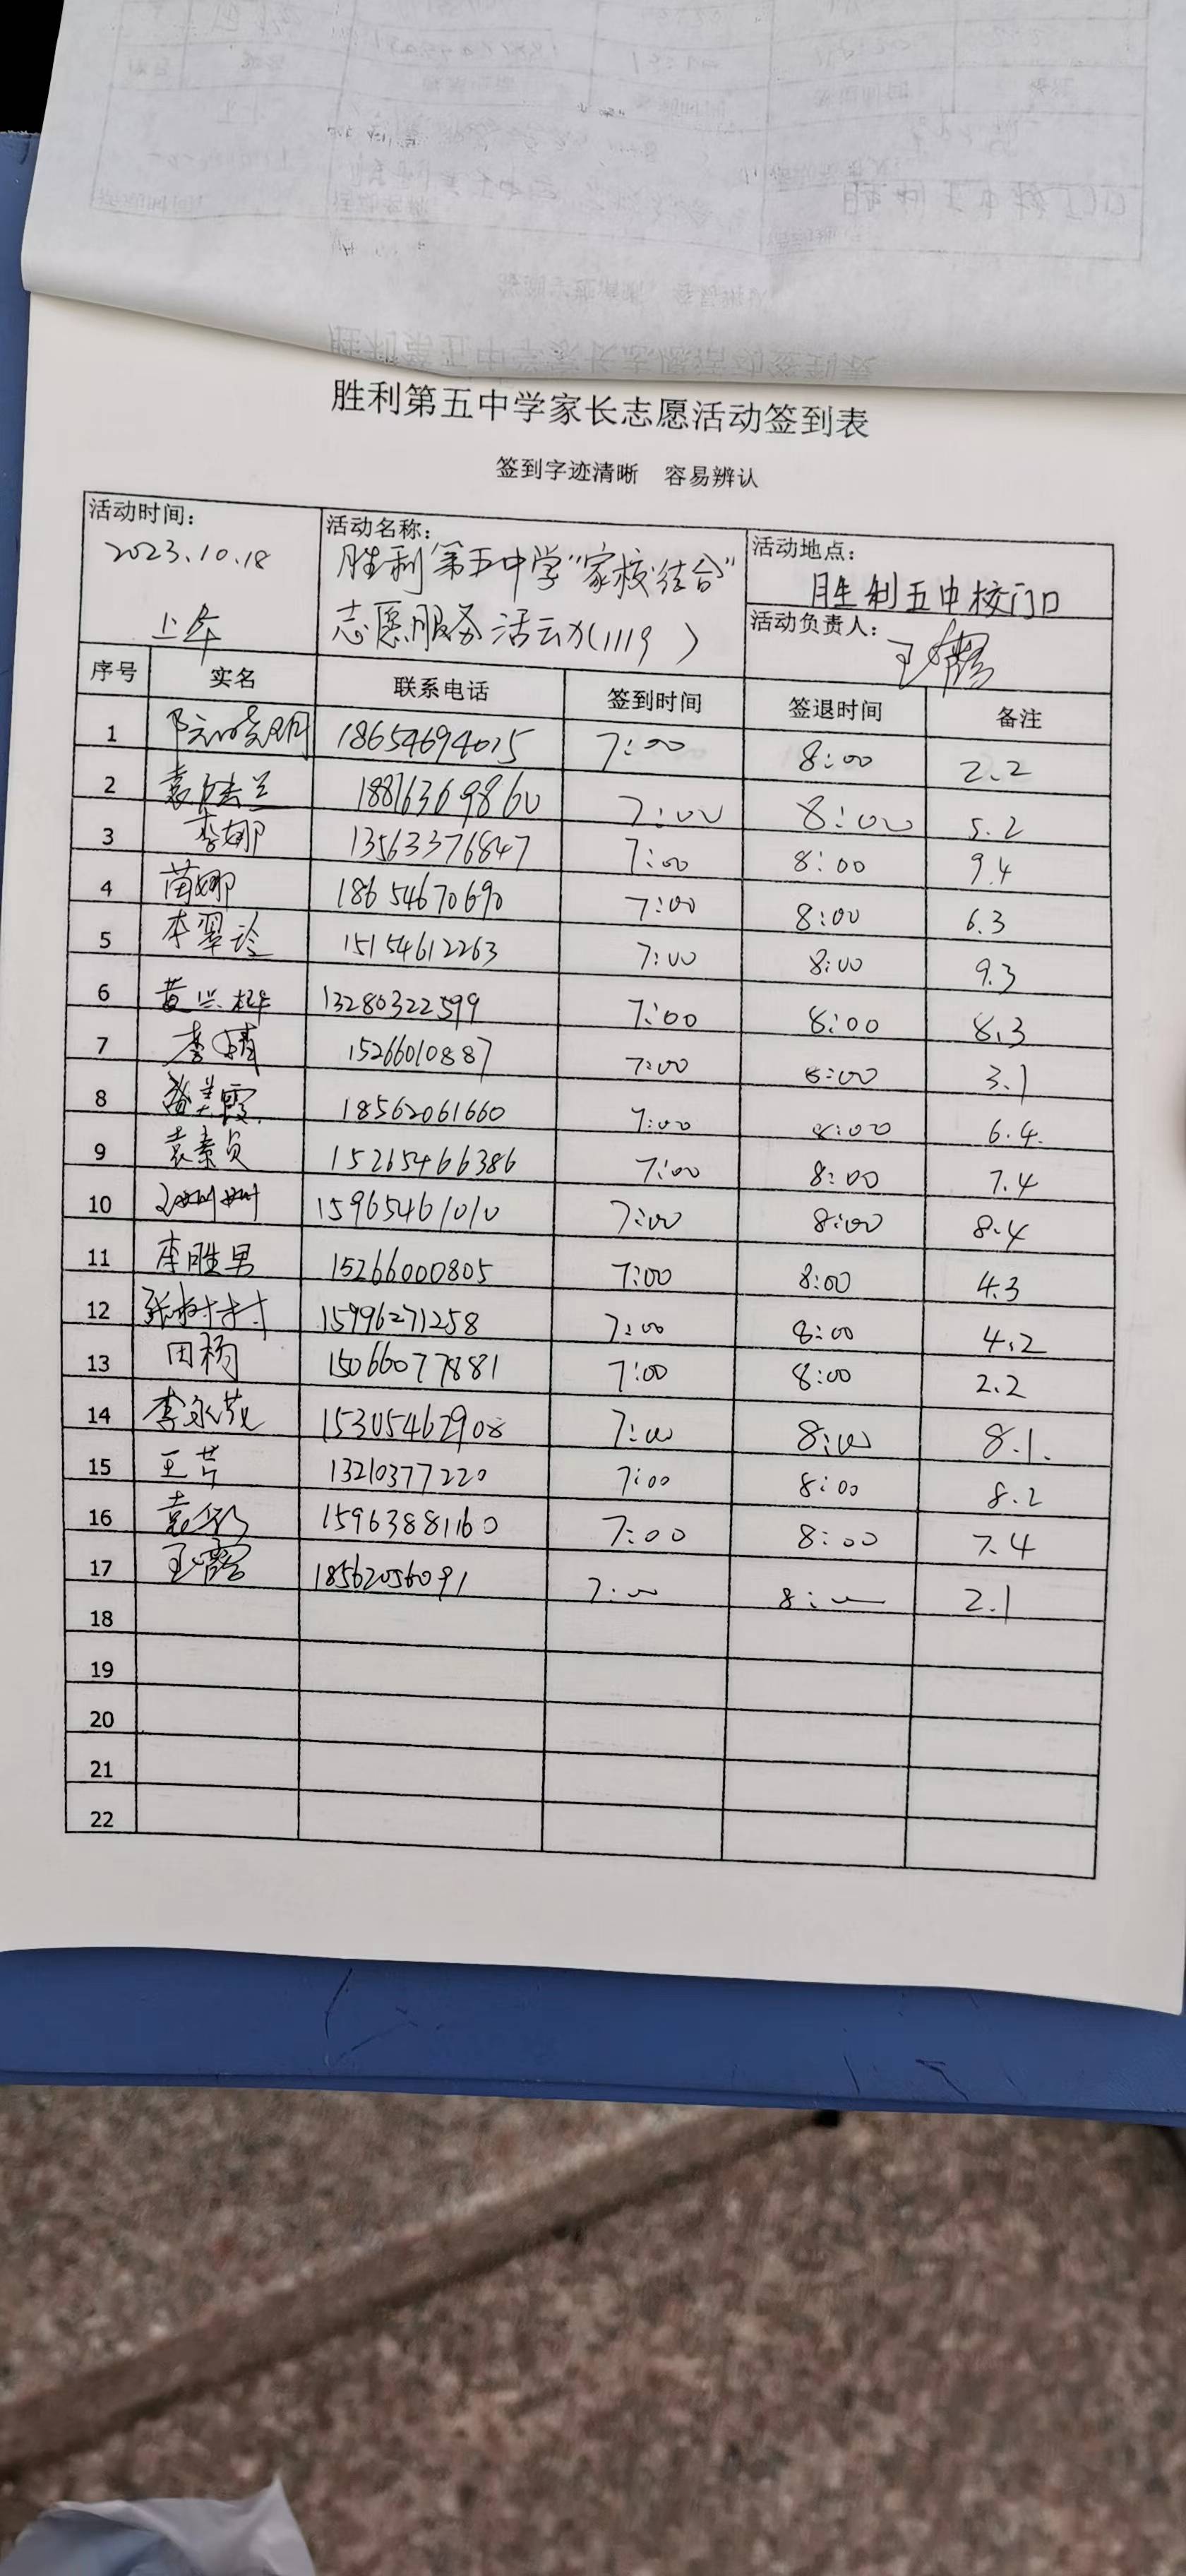 胜利第五中学家长志愿活动签到表
签到字迹清晰 容易辨认
活动时间: 2023.10.18 上午
活动名称: 胜利第五中学"家校结合"
志愿服务活动(1119)
活动地点: 胜利五中校门口
活动负责人: 王
序号 实名 联系电话 签到时间 签退时间 备注
1 18654694025 7:00 8:00 2.2
2 袁 兰 18816369860 7:00 8:00 5.2
3 李娜 13563376847 7:00 8:00 9.4
4 苗娜 18654670690 7:00 8:00 6.3
5 李翠玲 15154612263 7:00 8:00 9.3
6 黄兴桦 13280322599 7:00 8:00 8.3
7 李婧 15266010887 7:00 8:00 3.1
8 美霞 18562061660 7:00 8:00 6.4.
9 袁素贞 15265466386 7:00 8:00 7.4
10 王姗姗 15965461010 7:00 8:00 8.4
11 李胜男 15266000805 7:00 8:00 4.3
12 张树村 15996271258 7:00 8:00 4.2
13 田杨 15066077881 7:00 8:00 2.2
14 李永花 15305462908 7:00 8:00 8.1.
15 王芹 13210377220 7:00 8:00 8.2
16 袁 15963881160 7:00 8:00 7.4
17 王 18562056091 7:00 8:00 2.1
18
19
20
21
22